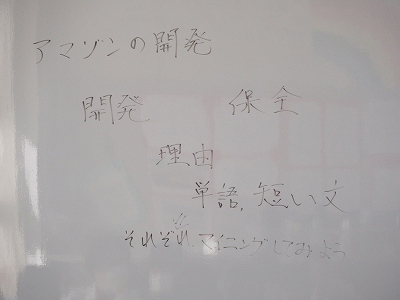 アマゾンの開発
開発 保全
理由
単語, 短い文
それぞれマイニングしてみよう